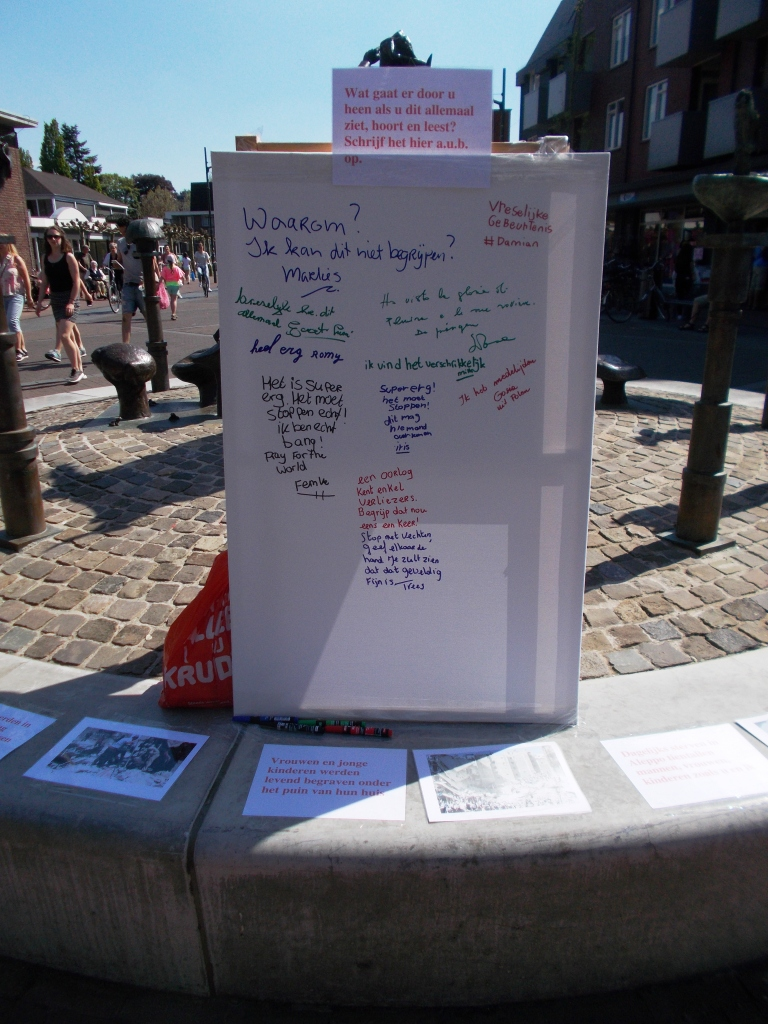 Wat gaat er door u
heen als u dit allemaal
ziet, hoort en leest?
Schrijf het hier a.u.b.
op.
Waarom?
Ik kan dit niet begrijpen?
Marlies
Vreselijke
Gebeurtenis
#Damian
allemaal
heel erg Romy
ik vind het verschrikkelijk
Ik heb medelijden
Het is super
erg. Het moet
stoppen echt!
ik ben echt
bang!
Pray for the
world
Femke
Super erg!
het moet
stoppen!
dit mag
niemand
overkomen
iris
een oorlog
kent enkel
verliezers.
Begrijp dat nou
eens een keer!
Stop met vechten,
geef elkaar de
hand. Je zult zien
dat dat geweldig
fijn is
Trees
KRUD
Vrouwen en jonge
kinderen werden
levend begraven onder
het puin van hun huis.
Aleppo